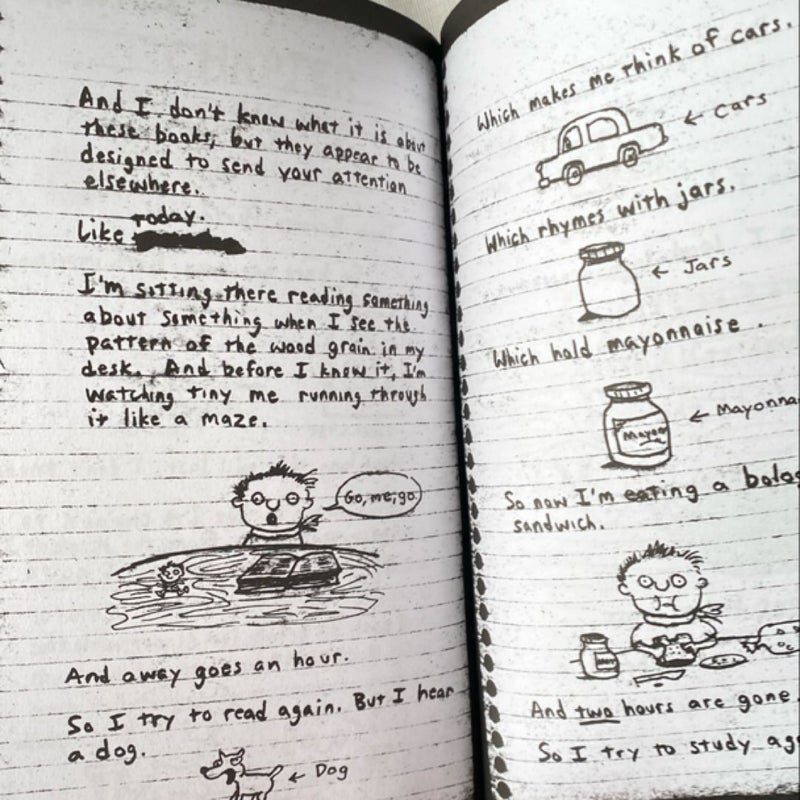 And I don't know what it is about
these books, but they appear to be
designed to send your attention
elsewhere.
today.
Like
I'm sitting there reading something
about something when I see the
pattern of the wood grain in my
desk. And before I know it, I'm
watching tiny me running through
it like a maze.
Go, me, go.
And away goes an hour.
So I try to read again. But I hear
a dog.
← Dog
Which makes me think of cars.
← Cars
Which rhymes with jars.
← Jars
Which hold mayonnaise.
← Mayonna
Mayon
So now I'm eating a bolog
sandwich.
And two hours are gone.
So I try to study aga